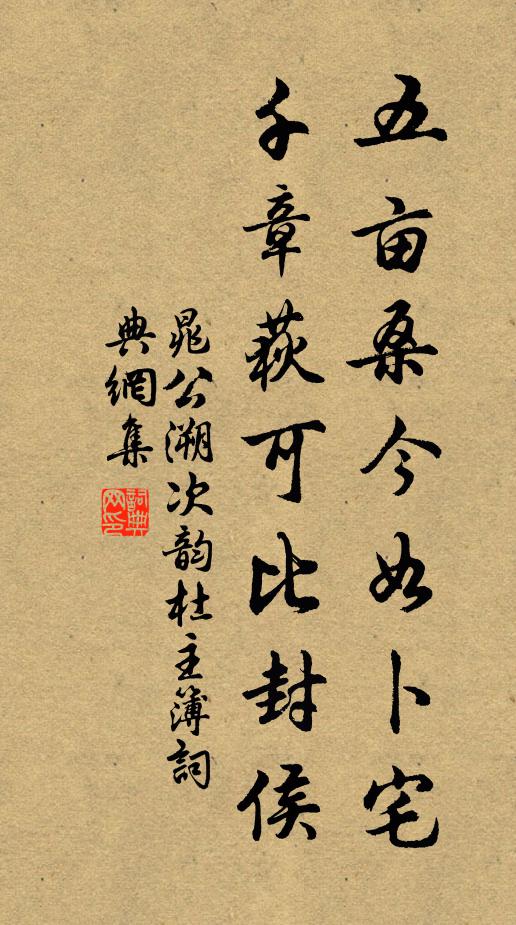 五亩桑今如卜宅
千章萩可比封侯
晁公溯次韵杜主簿詞
典網集
詞典网印